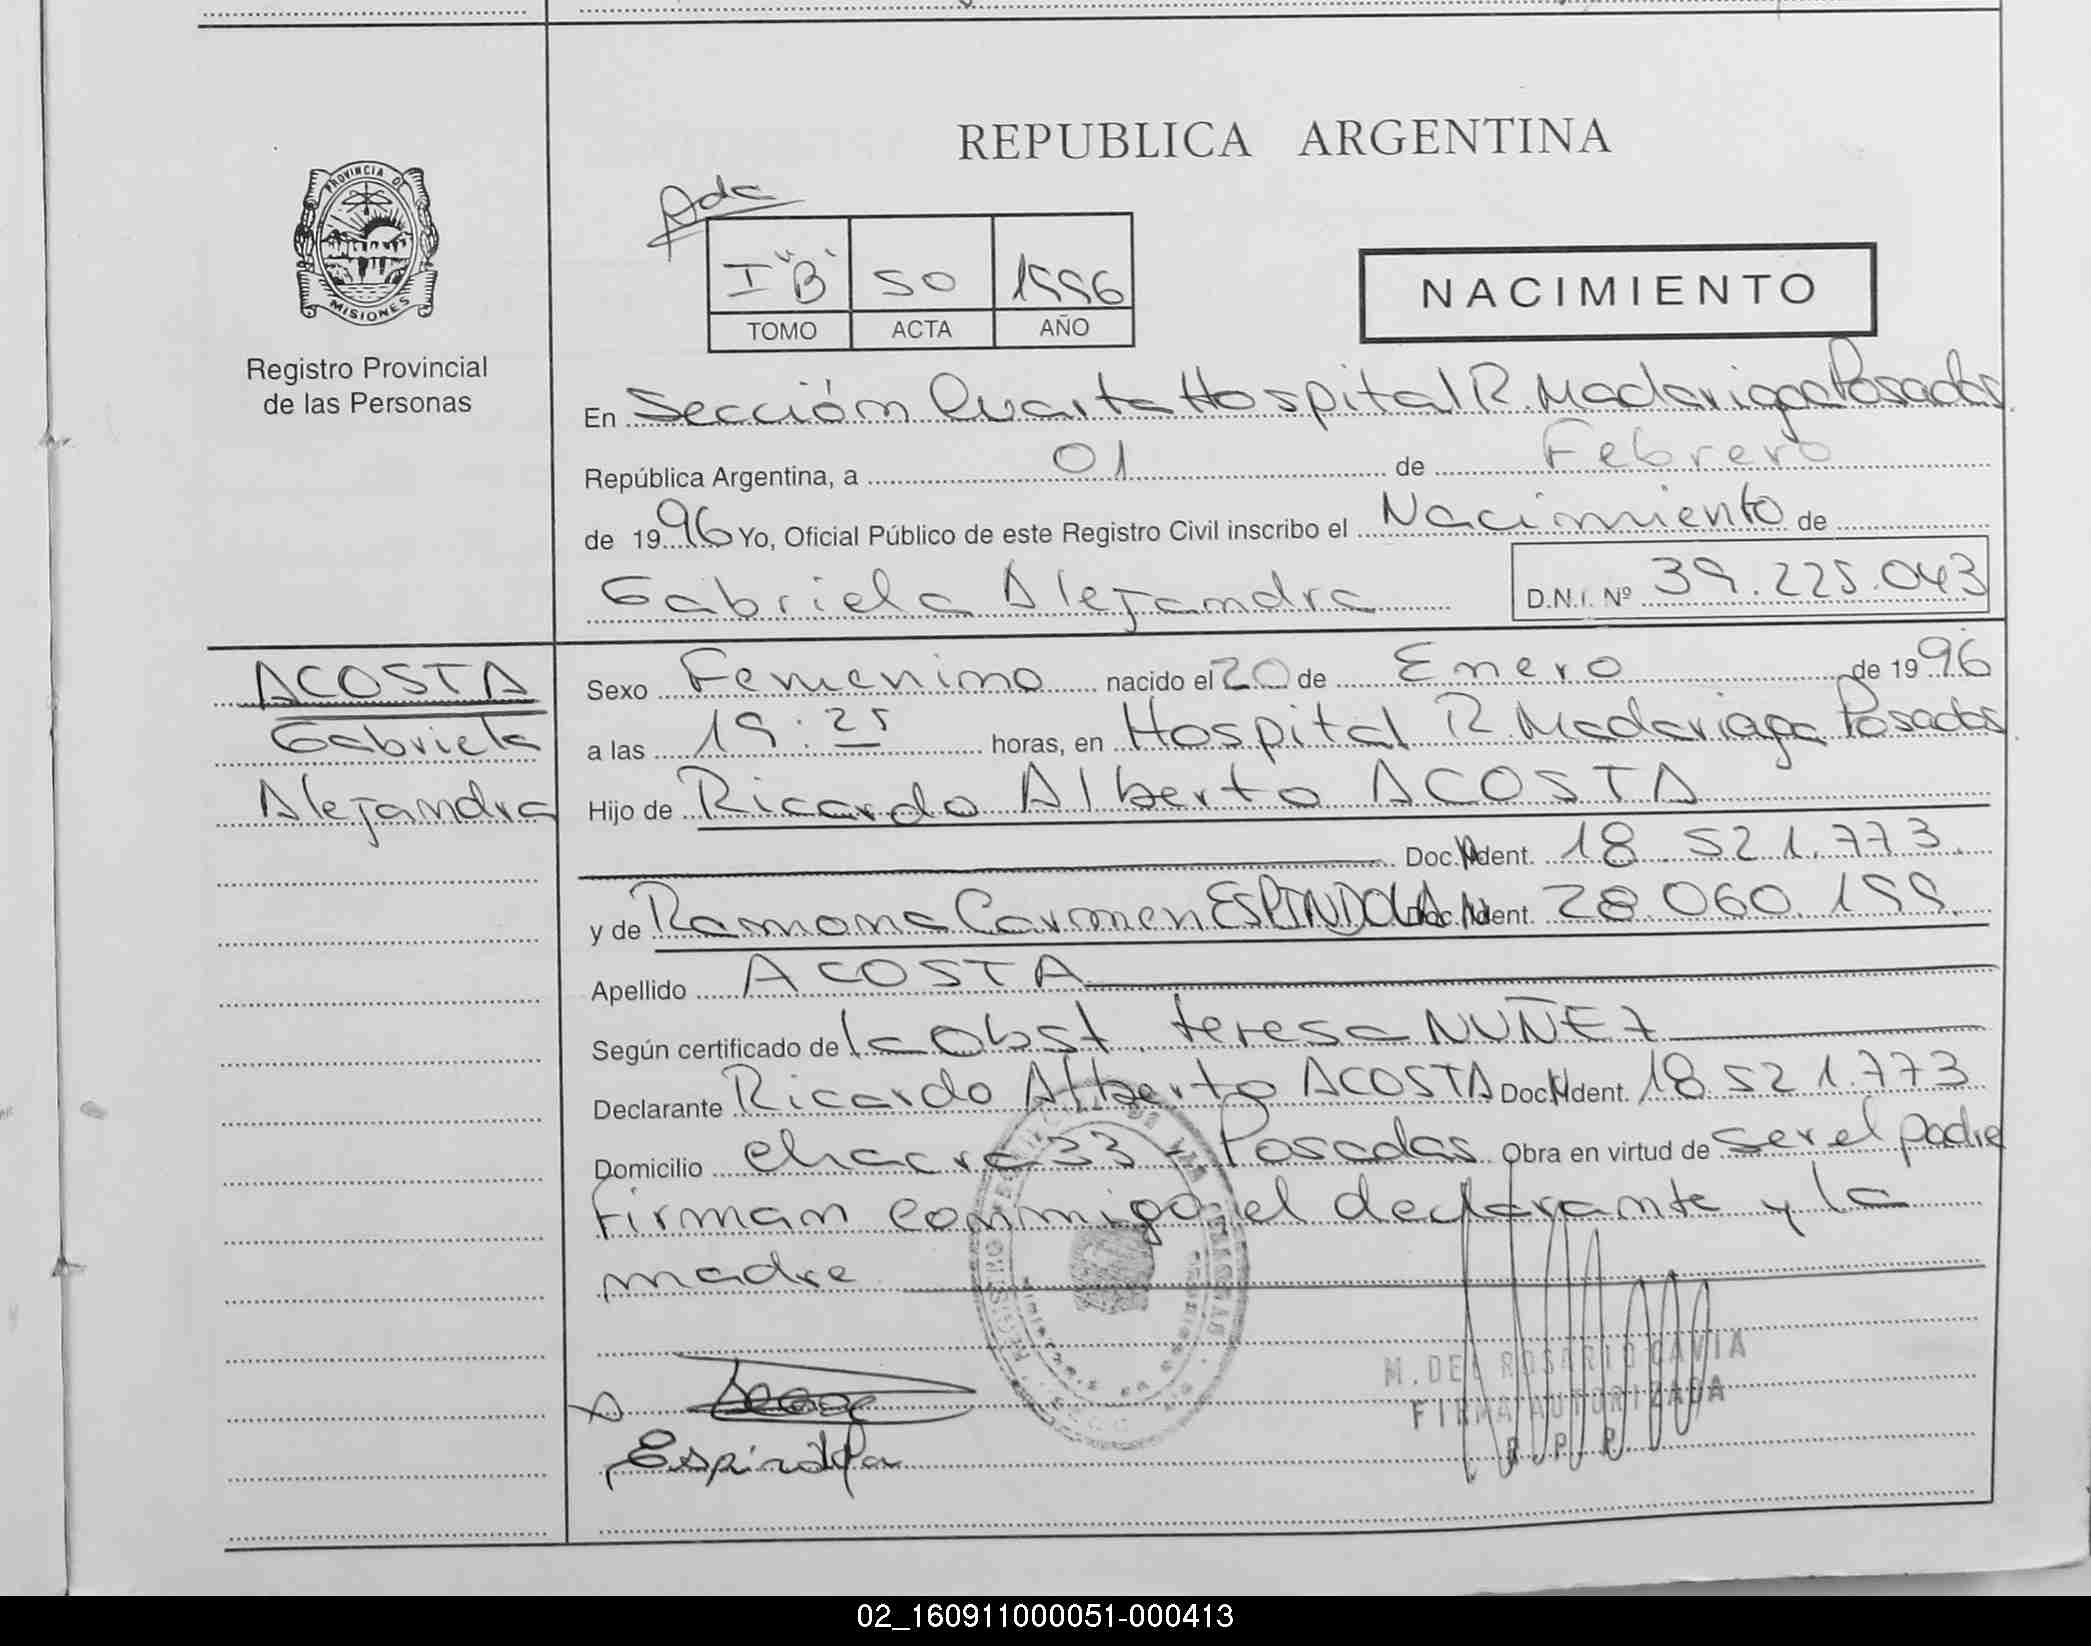 REPUBLICA ARGENTINA
PROVINCIA DE
MISIONES
Registro Provincial
de las Personas
I "B" 50 1996
TOMO ACTA AÑO
NACIMIENTO
En Sección Cuarta Hospital R. Madariaga Posadas
República Argentina, a 01 de Febrero
de 1996 Yo, Oficial Público de este Registro Civil inscribo el Nacimiento de
Gabriela Alejandra D.N.I. Nº 39.225.043
ACOSTA
Gabriela
Alejandra
Sexo Femenino nacido el 20 de Enero de 1996
a las 19:25 horas, en Hospital R Madariaga Posadas
Hijo de Ricardo Alberto ACOSTA
Doc. Ident. 18.521.773
y de Ramona Carmen ESPINDOLA Doc. Ident. 28.060.199
Apellido ACOSTA
Según certificado de la Obst. teresa NUÑEZ
Declarante Ricardo Alberto ACOSTA Doc. Ident. 18.521.773
Domicilio chacra 33 - Posadas Obra en virtud de ser el padre
Firman conmigo, el declarante y la
madre
M. DEL ROSARIO CAVIA
FIRMA AUTORIZADA
R. P. P.
Espindola
02_160911000051-000413